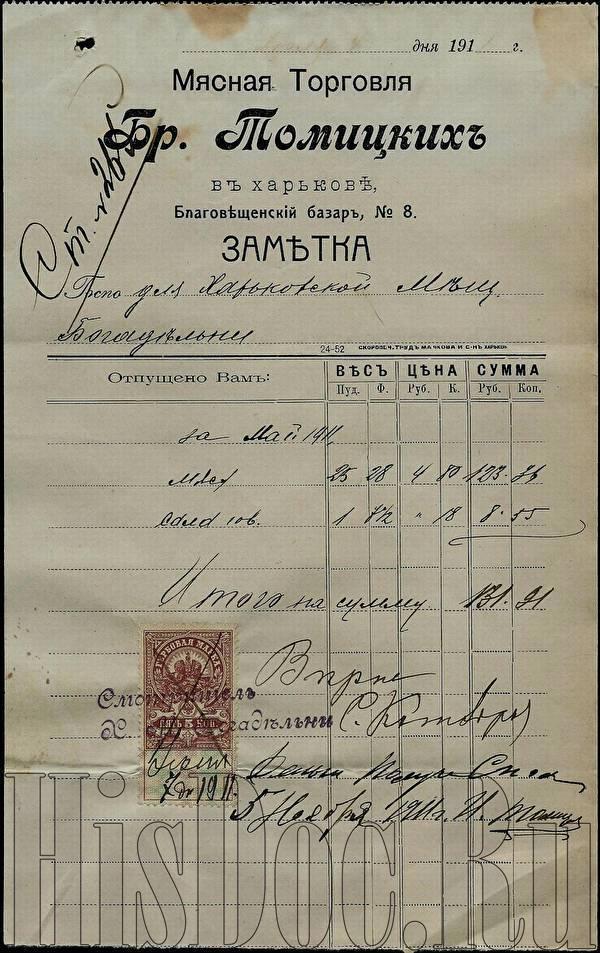 дня 191 г.
Мясная Торговля
Бр. Томицкихъ
въ харьковѣ,
Благовѣщенскій базаръ, № 8.
ЗАМѢТКА
для Харьковской Мѣщ.
Богадѣльни
24-52 СКОРОПЕЧ. „ТРУДЪ МАЧКОВА И С-НЪ ХАРЬКОВ
Отпущено Вамъ: ВѢСЪ ЦѢНА СУММА
Пуд. Ф. Руб. К. Руб. Коп.
за Май 1911
25 28 4 80 123
сало 1 7½ " 18 8 55
Итого на сумму 131. 91
ГЕРБОВАЯ МАРКА
ПЯТЬ 5 КОП.
Смотритель
Х. Богадѣльни
Вѣрно
7 1911.
5 Ноября 1911 г. И. Томиц
HisDoc.Ru